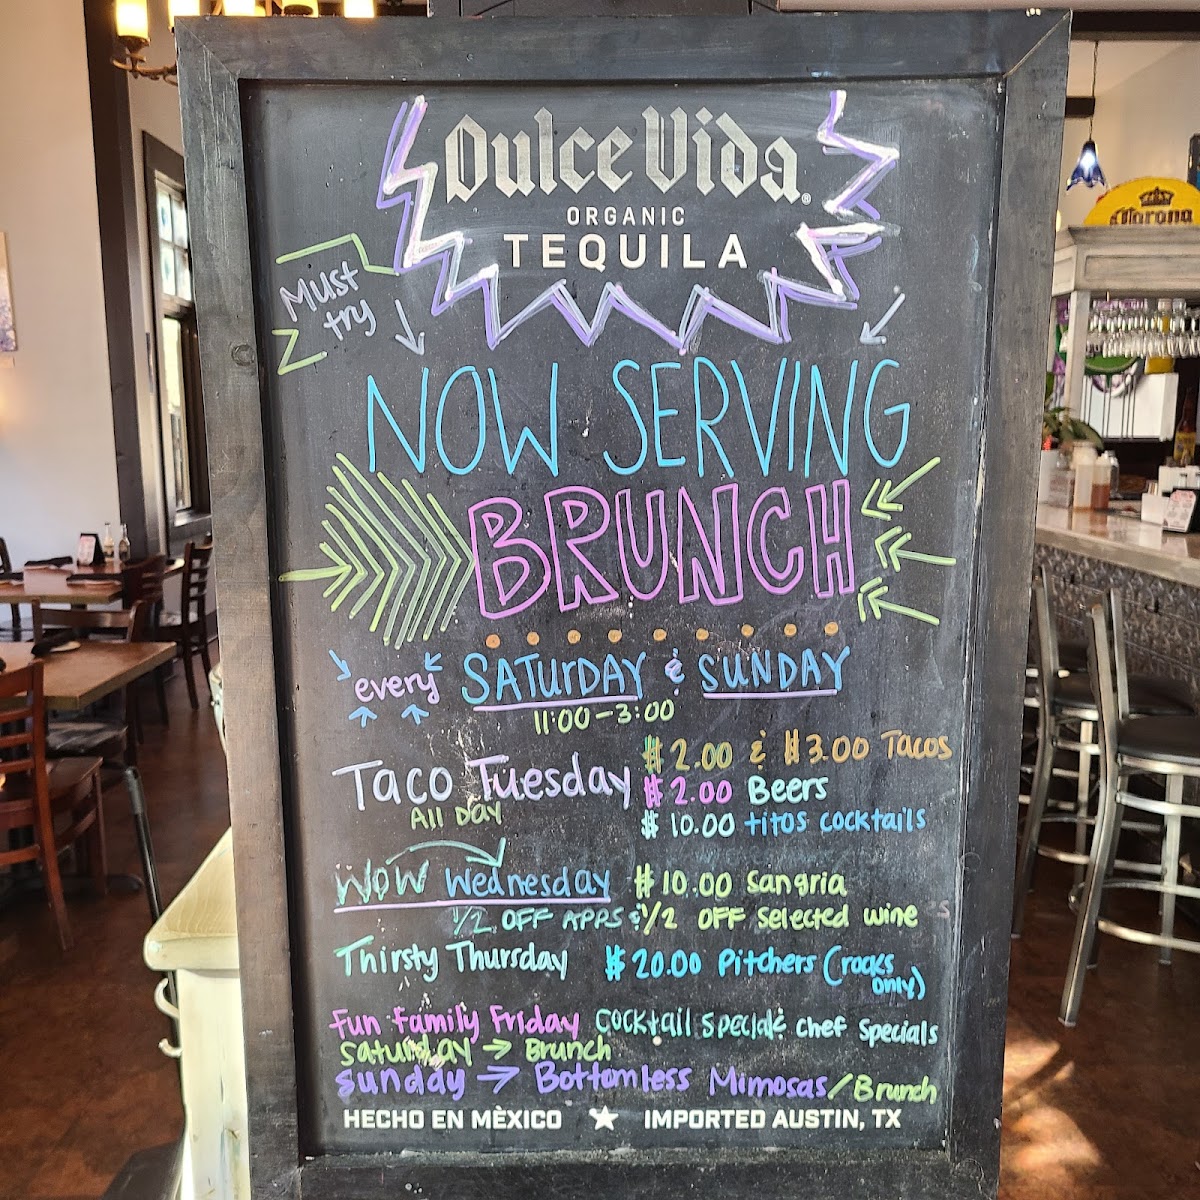 Dulce Vida®
ORGANIC
TEQUILA
Must
try
Corona
NOW SERVING
BRUNCH
every SATURDAY & SUNDAY
11:00-3:00
Taco Tuesday $2.00 & $3.00 Tacos
All Day $2.00 Beers
$10.00 titos cocktails
WOW Wednesday $10.00 sangria
1/2 OFF APPS & 1/2 OFF selected wine
Thirsty Thursday $20.00 Pitchers (rocks
only)
Fun Family Friday cocktail special & chef specials
Saturday → Brunch
Sunday → Bottomless Mimosas/Brunch
HECHO EN MÈXICO ★ IMPORTED AUSTIN, TX